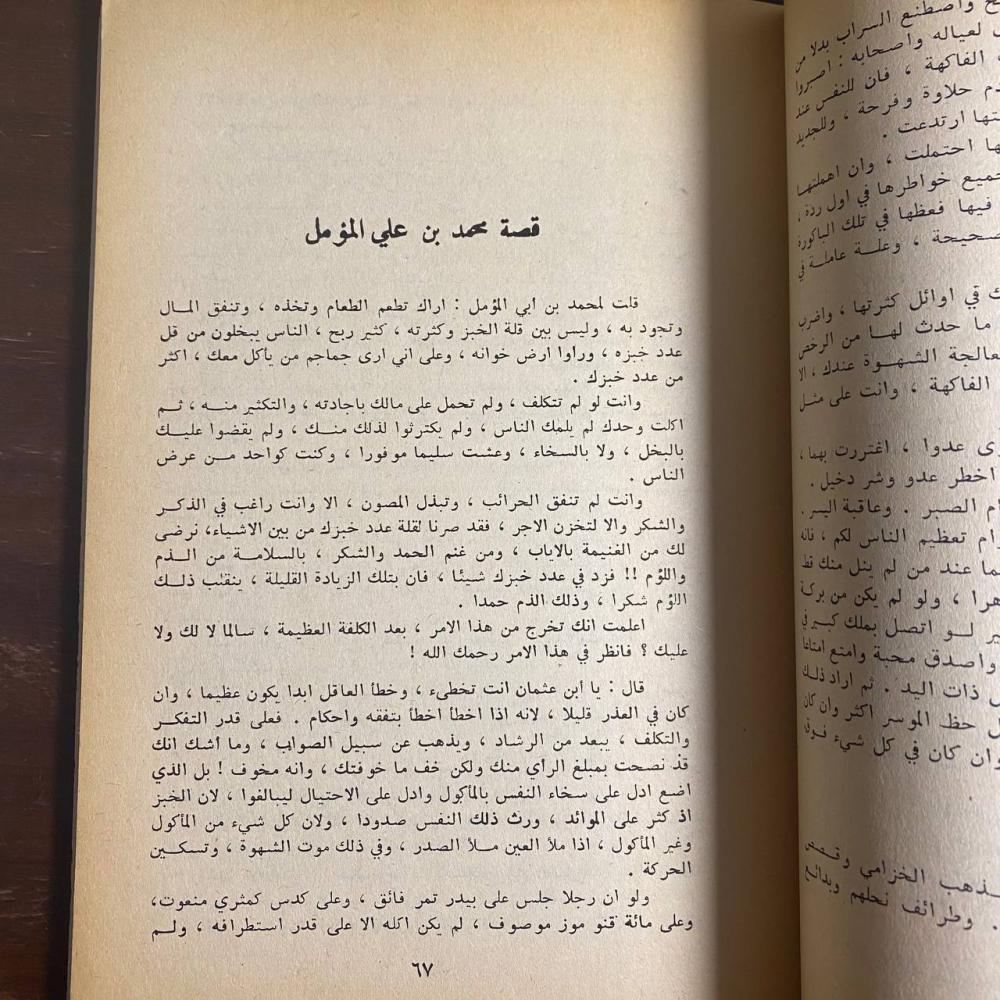 قصة محمد بن علي المؤمل
قلت لمحمد بن أبي المؤمل : اراك تطعم الطعام وتخذه ، وتنفق المال
وتجود به ، وليس بين قلة الخبز وكثرته ، كثير ربح ، الناس يبخلون من قل
عدد خبزه ، ورأوا ارض خوانه ، وعلى اني ارى جماجم من يأكل معك ، اكثر
من عدد خبزك .
وانت لو لم تتكلف ، ولم تحمل على مالك باجادته ، والتكثير منه ، ثم
اكلت وحدك لم يلمك الناس ، ولم يكترثوا لذلك منك ، ولم يقضوا عليك
بالبخل ، ولا بالسخاء ، وعشت سليما موفورا ، وكنت كواحد من عرض
الناس .
وانت لم تنفق الحرائب ، وتبذل المصون ، الا وانت راغب في الذكر
والشكر والا لتخزن الاجر ، فقد صرنا لقلة عدد خبزك من بين الاشياء، نرضى
لك من الغنيمة بالاياب ، ومن غنم الحمد والشكر ، بالسلامة من الذم
واللؤم !! فزد في عدد خبزك شيئا ، فان بتلك الزيادة القليلة ، ينقلب ذلك
اللؤم شكرا ، وذلك الذم حمدا .
اعلمت انك تخرج من هذا الامر ، بعد الكلفة العظيمة ، سالما لا لك ولا
عليك ؟ فانظر في هذا الامر رحمك الله !
قال : يا أبن عثمان انت تخطىء ، وخطأ العاقل ابدا يكون عظيما ، وان
كان في العذر قليلا ، لانه اذا اخطأ اخطأ بتفقه واحكام . فعلى قدر التفكر
والتكلف ، يبعد من الرشاد ، ويذهب عن سبيل الصواب ، وما أشك انك
قد نصحت بمبلغ الرأي منك ولكن خف ما خوفتك ، وانه مخوف ! بل الذي
اضع ادل على سخاء النفس بالمأكول وادل على الاحتيال ليبالغوا ، لان الخبز
اذ كثر على الموائد ، ورث ذلك النفس صدودا ، ولان كل شيء من المأكول
وغير المأكول ، اذا ملأ العين ملأ الصدر ، وفي ذلك موت الشهوة ، وتسكين
الحركة .
ولو ان رجلا جلس على بيدر تمر فائق ، وعلى كدس كمثري منعوت،
وعلى مائة قنو موز موصوف ، لم يكن اكله الا على قدر استطرافه ، ولم
٦٧
واصطنع السراب بدلا من
لعياله واصحابه : اصبروا
الفاكهة ، فان للنفس عند
حلاوة وفرحة ، وللجديد
ارتدعت .
احتملت ، وان اهملتها
خواطرها في اول ردة ،
فيها فعظها في تلك الباكورة
وعلة عاملة في
في اوائل كثرتها ، واضرب
ما حدث لها من الرخص
الشهوة عندك ، الا
الفاكهة ، وانت على مثل
عدوا ، اغتررت بهما ،
اخطر عدو وشر دخيل .
الصبر . وعاقبة اليسر .
تعظيم الناس لكم ، فانه
عند من لم ينل منك قط
ولو لم يكن من بركة
لو اتصل بملك كبير في
واصدق محبة وامنع امتاعا
ذات اليد . ثم اراد ذلك
حظ الموسر اكثر وان كان
وان كان في كل شيء فوق
الخزامي وقصص
. وطرائف نحلهم وبدائع